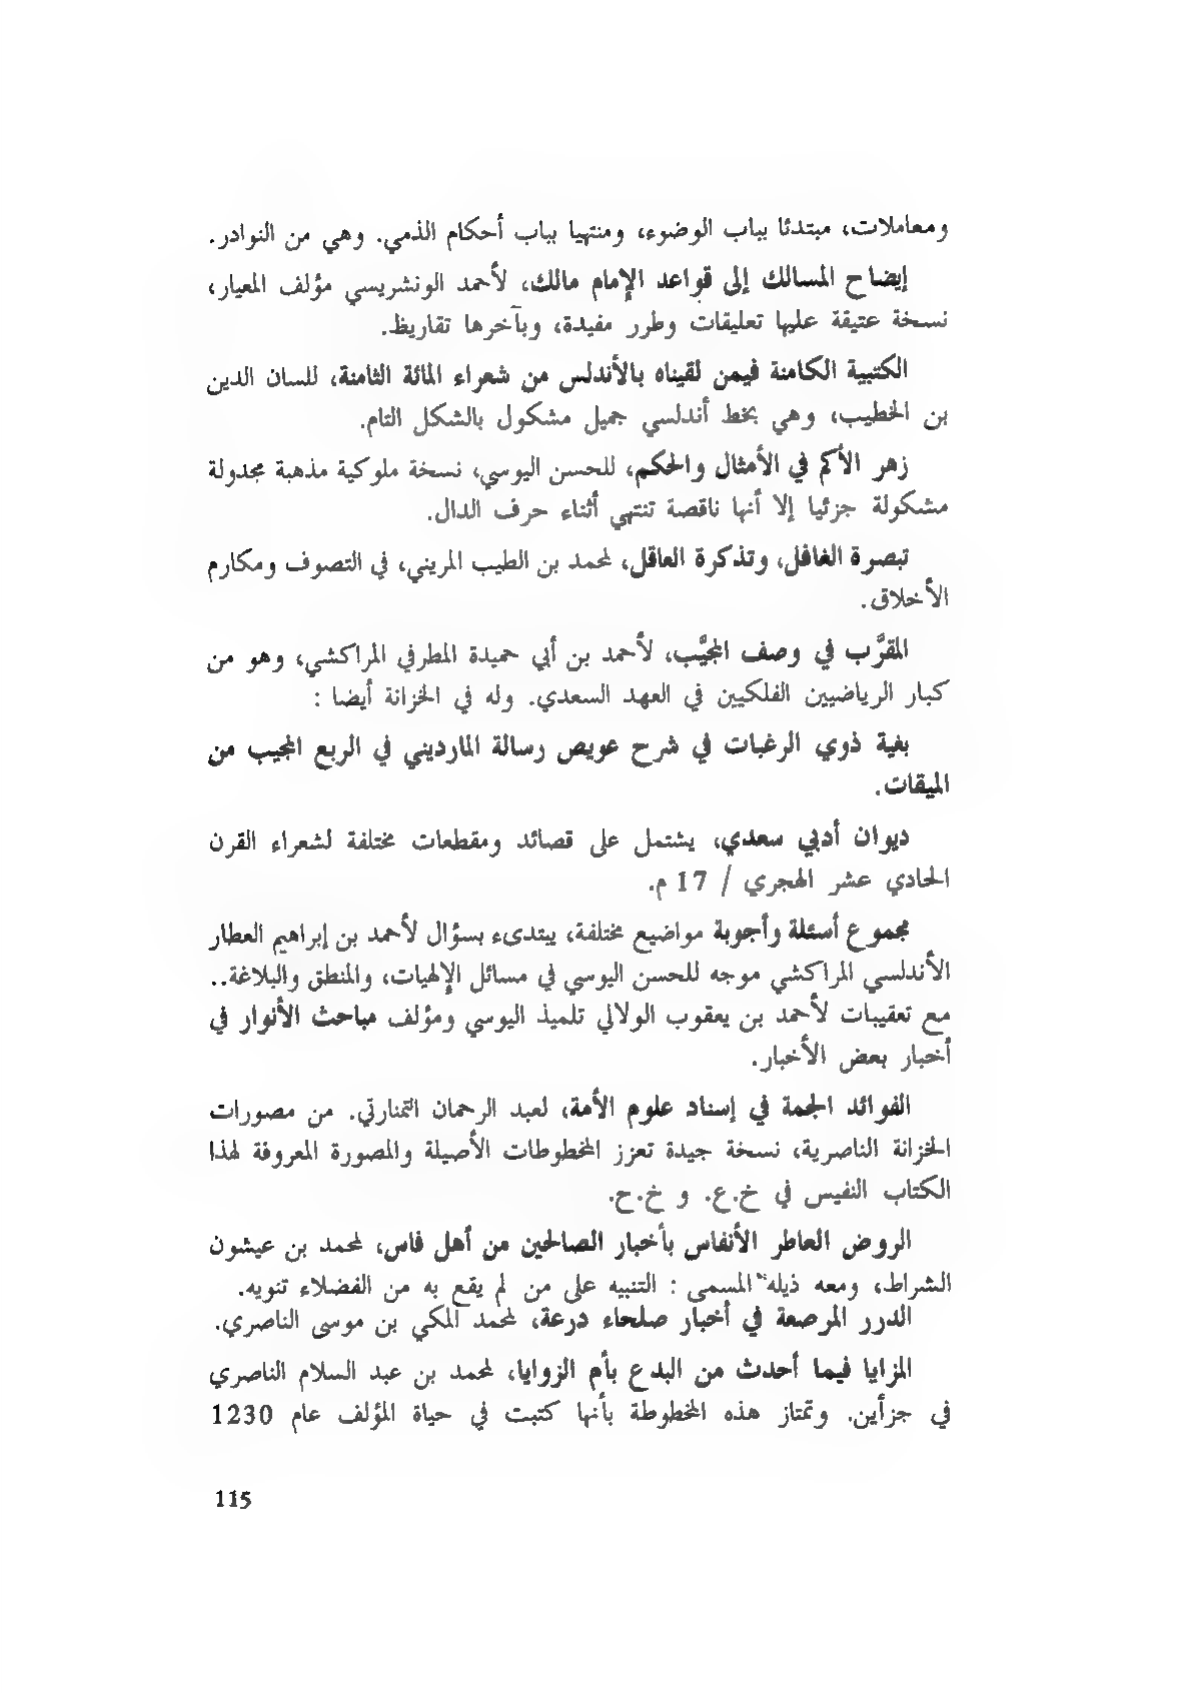 ومعاملات، مبتدئا بباب الوضوء، ومنتهيا بباب أحكام الذمي. وهي من النوادر.
إيضاح المسالك إلى قواعد الإمام مالك، لأحمد الونشريسي مؤلف المعيار،
نسخة عتيقة عليها تعليقات وطرر مفيدة، وبآخرها تقاريظ.
الكتيبة الكامنة فيمن لقيناه بالأندلس من شعراء المائة الثامنة، للسان الدين
بن الخطيب، وهي بخط أندلسي جميل مشكول بالشكل التام.
زهر الأكم في الأمثال والحكم، للحسن اليوسي، نسخة ملوكية مذهبة مجدولة
مشكولة جزئيا إلا أنها ناقصة تنتهي أثناء حرف الدال.
تبصرة الغافل، وتذكرة العاقل، لمحمد بن الطيب المريني، في التصوف ومكارم
الأخلاق.
المقرَّب في وصف المجيَّب، لأحمد بن أبي حميدة المطرفي المراكشي، وهو من
كبار الرياضيين الفلكيين في العهد السعدي. وله في الخزانة أيضا :
بغية ذوي الرغبات في شرح عويص رسالة المارديني في الربع المجيب من
الميقات.
ديوان أدبي سعدي، يشتمل على قصائد ومقطعات مختلفة لشعراء القرن
الحادي عشر الهجري / 17 م.
مجموع أسئلة وأجوبة مواضيع مختلفة، يبتدىء بسؤال لأحمد بن إبراهيم العطار
الأندلسي المراكشي موجه للحسن اليوسي في مسائل الإلهيات، والمنطق والبلاغة..
مع تعقيبات لأحمد بن يعقوب الولالي تلميذ اليوسي ومؤلف مباحث الأنوار في
أخبار بعض الأخبار.
الفوائد الجمة في إسناد علوم الأمة، لعبد الرحمان التمنارتي. من مصورات
الخزانة الناصرية، نسخة جيدة تعزز المخطوطات الأصيلة والمصورة المعروفة لهذا
الكتاب النفيس في خ.ع. و خ.ح.
الروض العاطر الأنفاس بأخبار الصالحين من أهل فاس، لمحمد بن عيشون
الشراط، ومعه ذيله المسمى : التنبيه على من لم يقع به من الفضلاء تنويه.
الدرر المرصعة في أخبار صلحاء درعة، لمحمد المكي بن موسى الناصري.
المزايا فيما أحدث من البدع بأم الزوايا، لمحمد بن عبد السلام الناصري
في جزأين. وتمتاز هذه المخطوطة بأنها كتبت في حياة المؤلف عام 1230
115